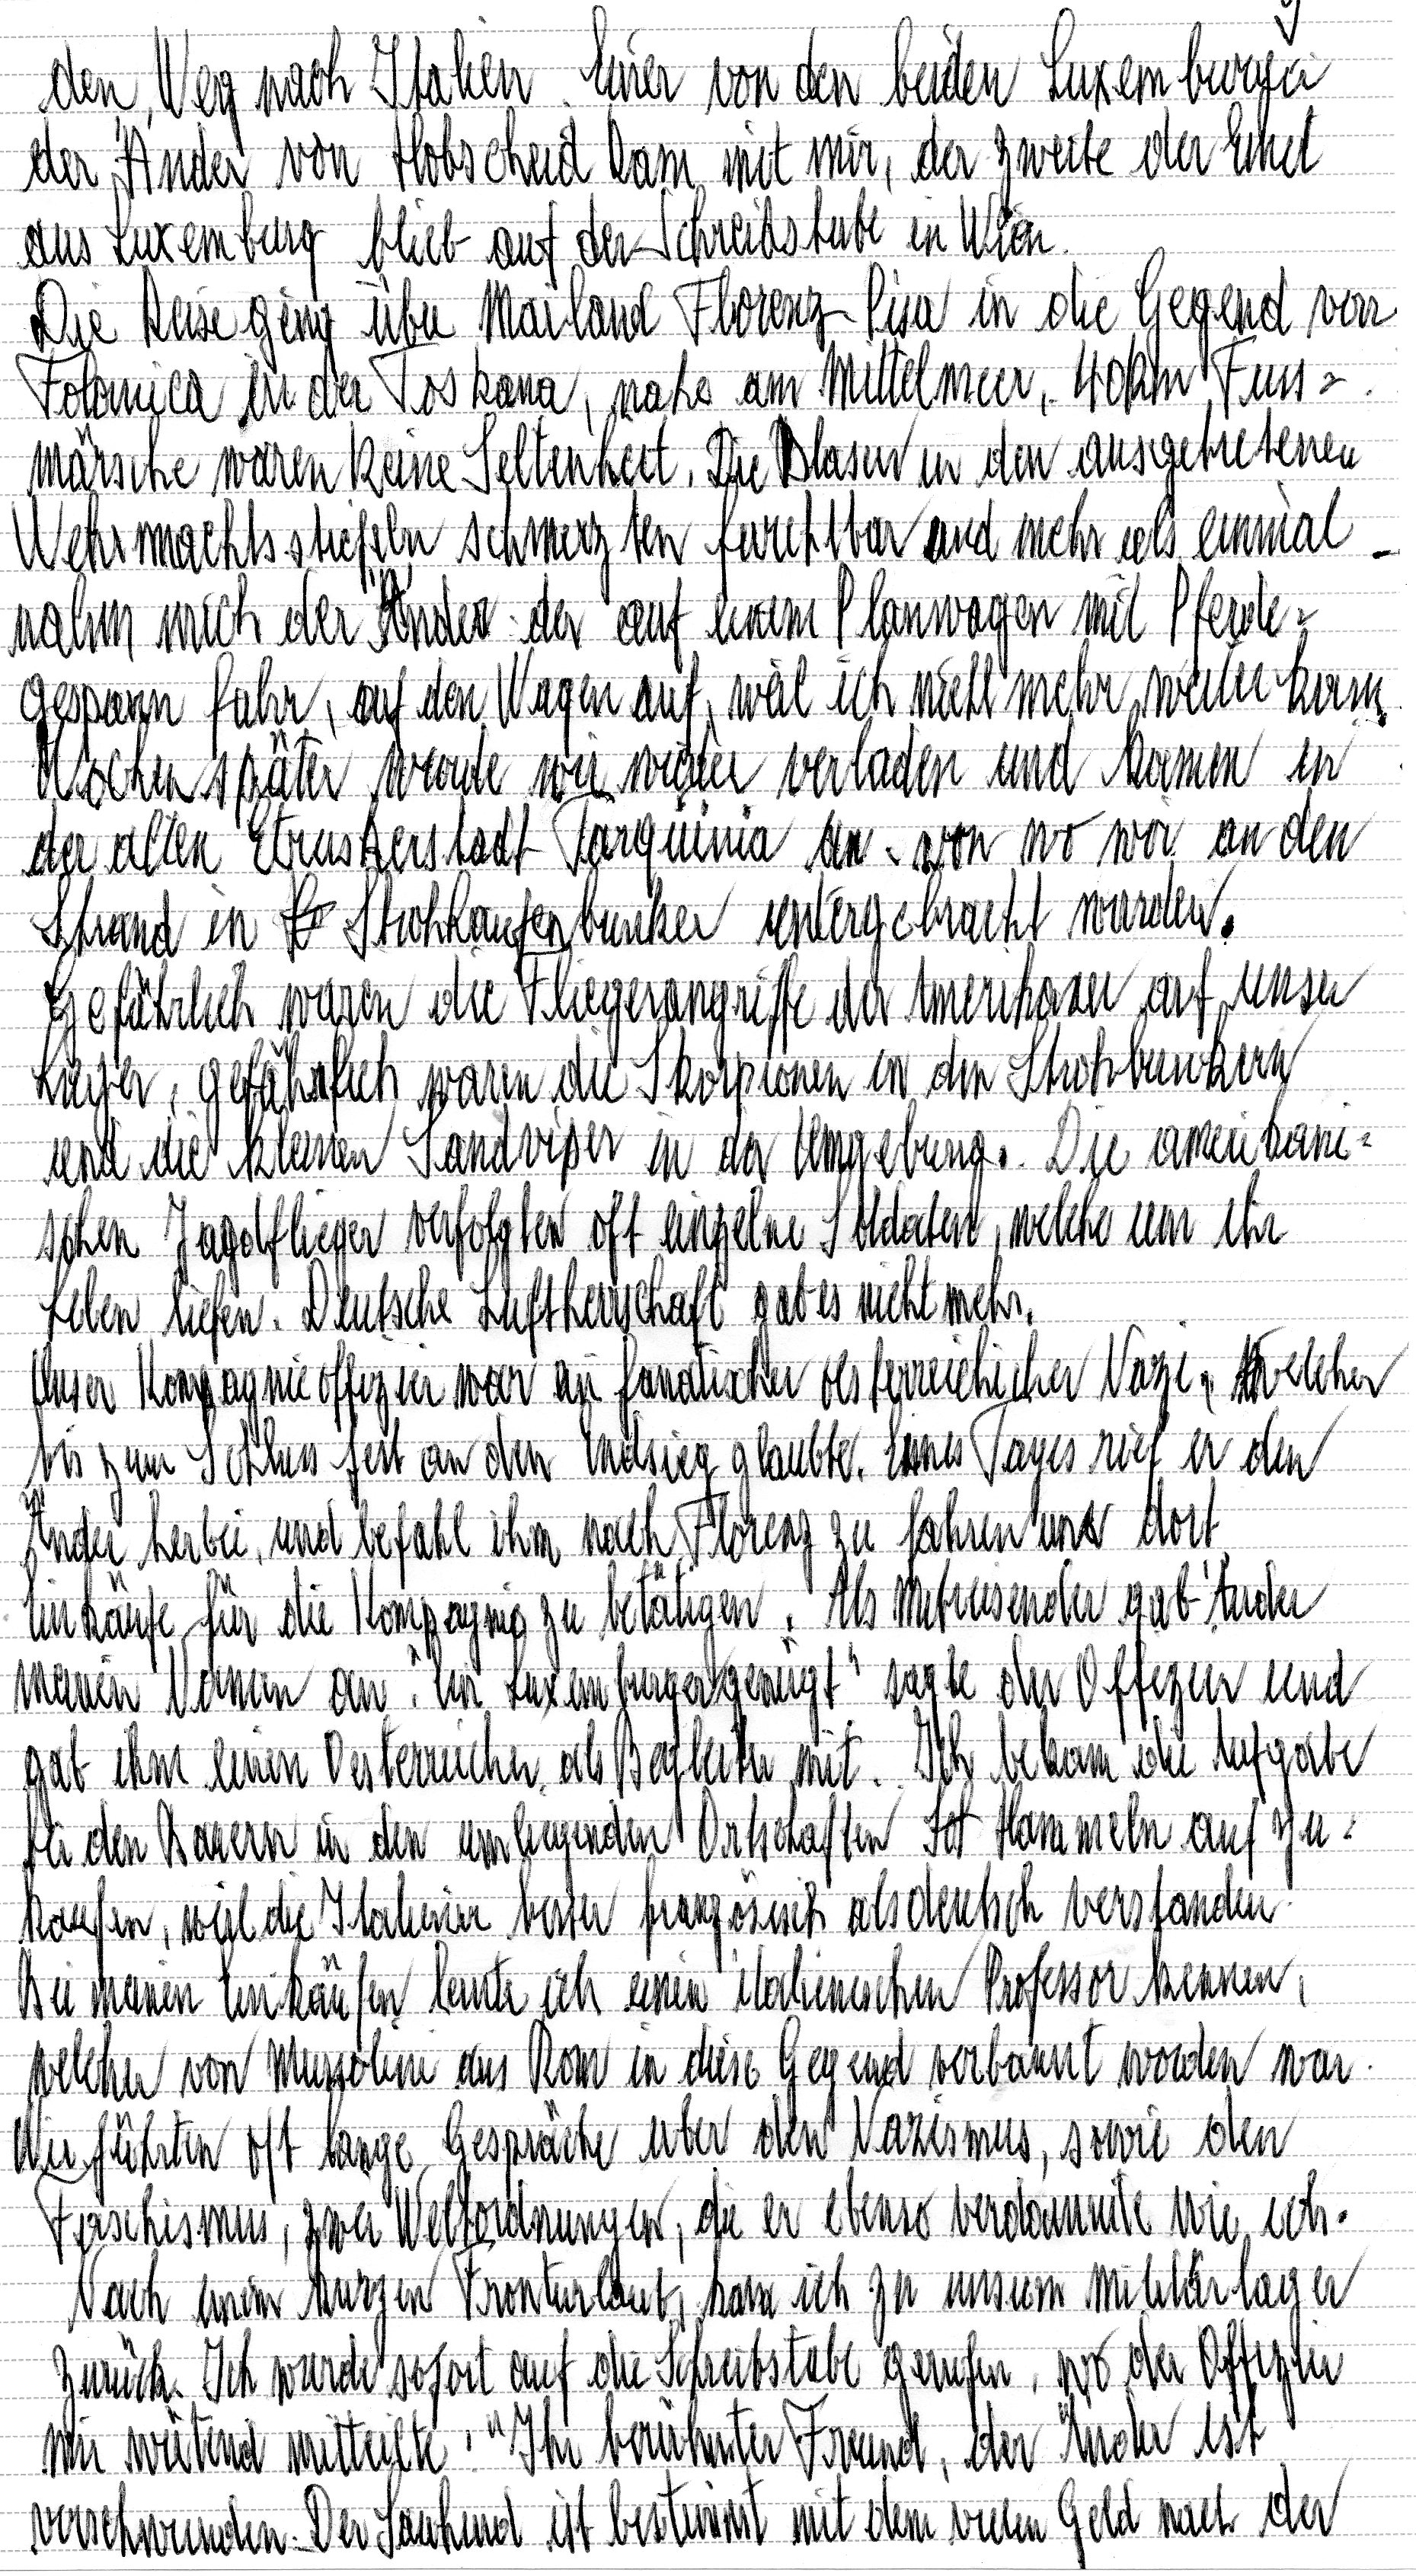 den Weg nach Italien. Einer von den beiden Luxemburger
der Änder von Hobscheid kam mit mir, der zweite der Eihel
aus Luxemburg blieb auf der Schreibstube in Wien.
Die Reise ging über Mailand Florenz-Pisa in die Gegend von
Folonica in der Toskana, nahe am Mittelmeer, 40km Fuss=
märsche waren keine Seltenheit. Die Blasen in den ausgetretenen
Wehrmachtsstiefeln schmerzten furchtbar und mehr als einmal
nahm mich der Änder der auf einem Planwagen mit Pferde=
gespann fuhr, auf den Wagen auf, weil ich nicht mehr weiter kam.
Wochen später wurde wir wieder verladen und kamen in
der alten Etruskerstadt Tarquinia an. von wo wir an den
Strand in Strohhaufenbunker untergebracht wurden.
Gefährlich waren die Fliegerangriffe der Amerikaner auf unser
Lager, gefährlich waren die Skorpionen in den Strohbunkern
und die kleinen Sandviper in der Umgebung. Die amerikani=
schen Jagdflieger verfolgten oft einzelne Soldaten, welche um ihr
Leben liefen. Deutsche Luftherrschaft gab es nicht mehr.
Unser Kompagnieoffizier war ein fanatischer oesterreichischer Nazi, welcher
bis zum Schluss fest an den Endsieg glaubte. Eines Tages rief er den
Änder herbei, und befahl ihm nach Florenz zu fahren und dort
Einkäufe für die Kompagnie zu betätigen. Als Mitreisender gab Änder
meinen Namen an. "Ein Luxemburger genügt" sagte der Offizier und
gab ihm einen Oesterreicher als Begleiter mit. Ich bekam die Aufgabe
bei den Bauern in den umliegenden Ortschaften Hammeln aufzu=
kaufen, weil die Italiener besser französisch als deutsch verstanden.
Bei meinen Einkäufen lernte ich einen italienischen Professor kennen,
welcher von Mussolini aus Rom in diese Gegend verbannt worden war.
Wir führten oft lange Gespräche über den Nazismus, sowie den
Faschismus, zwei Weltordnungen, die er ebenso verdammte wie ich.
Nach einem kurzen Fronturlaub, kam ich zu unserem Militärlager
zurück. Ich wurde sofort auf die Schreibstube gerufen, wo der Offizier
mir wütend mitteilte: "Ihr berühmter Freund, der Änder ist
verschwunden. Der Sauhund ist bestimmt mit dem vielen Geld nach der